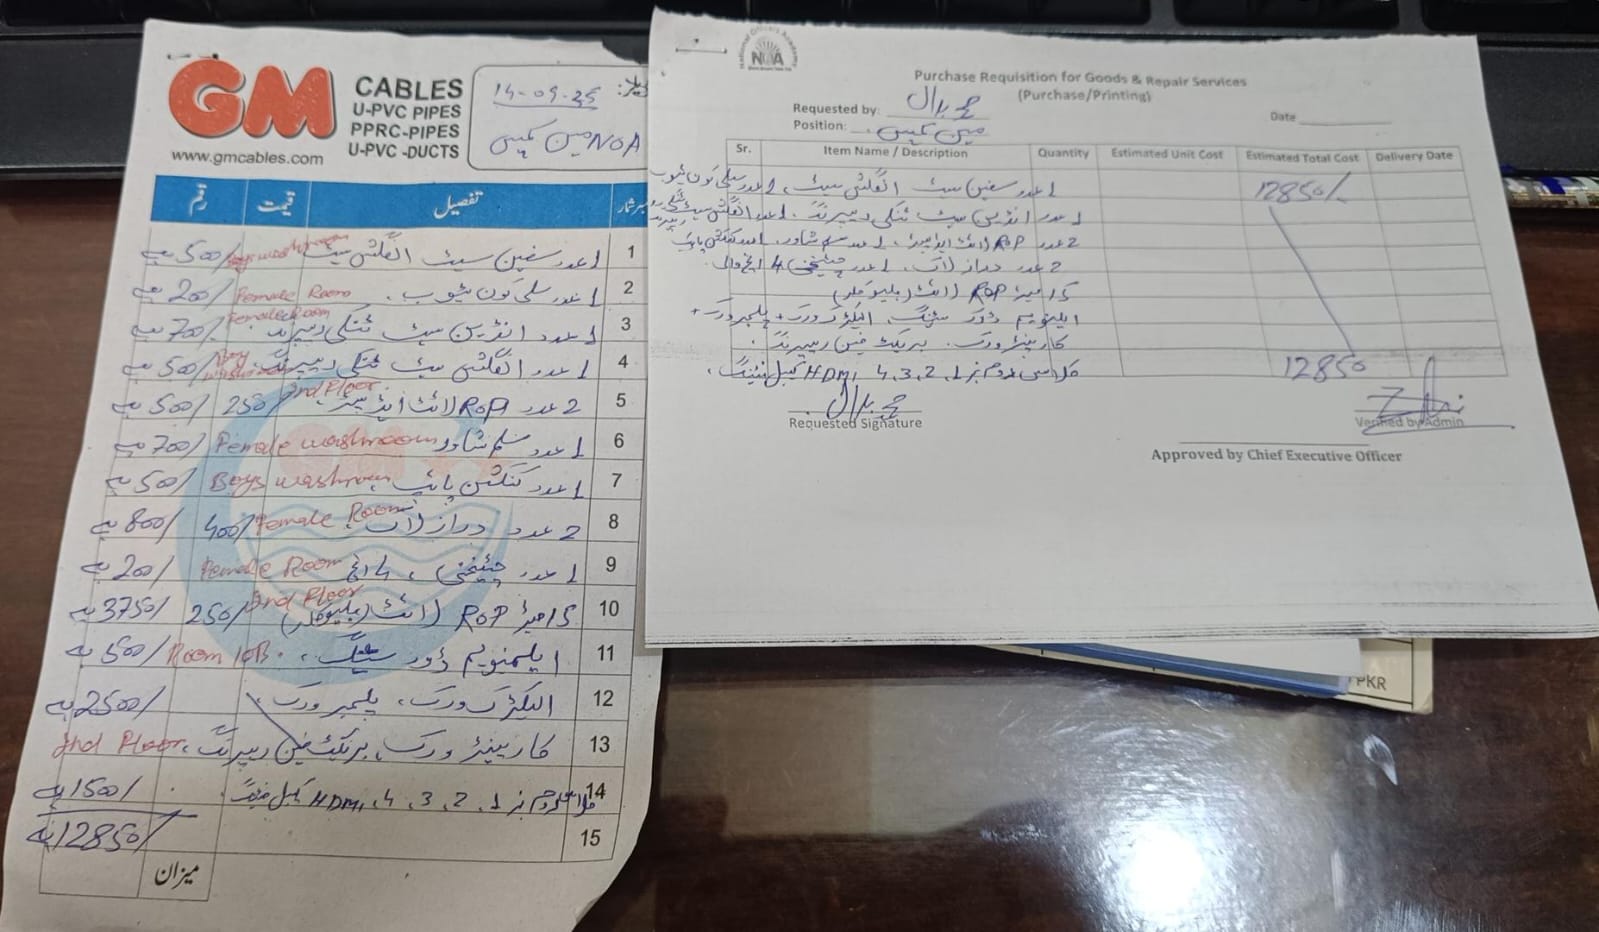 GM
CABLES
U-PVC PIPES
PPRC-PIPES
U-PVC -DUCTS
www.gmcables.com
14-09-25
NOA مین کیمپس
نمبر شمار تفصیل قیمت رقم
1 1 عدد سفین سیٹ انگلش سیٹ Boys washroom 500/
2 1 عدد سلی کون ٹیوب۔ Female Room 200/
3 1 عدد انڈین سیٹ ٹنکی رپیرنگ Female Room 700/
4 1 عدد انگلش سیٹ ٹنکی رپیرنگ Boy 500/
5 2 عدد ROP لائٹ اڈیپٹر 2nd Floor 250/ 500/
6 1 عدد مسلم شاور Female washroom 700/
7 1 عدد کنکشن پائپ Boys washroom 500/
8 2 عدد دراز لاک Female Room 400/ 800/
9 1 عدد چٹخنی، 4 انچ Female Room 200/
10 میٹر ROP لائٹ (بلیو کلر) 2nd Floor 250/ 3750/
11 ایلمنویم ڈور سیٹنگ، Room 10B. 500/
12 الیکٹرک ورک، پلمبر ورک، 2500/
13 کارپینٹر ورک، بریکٹ فین رپیرنگ، 2nd Floor
14 کلاس روم نمبر 1، 2، 3، 4، HDMI کیبل فٹنگ 1500/
15 12850/
میزان
National Officers Academy
NOA
Purchase Requisition for Goods & Repair Services
(Purchase/Printing)
Requested by: محمد بلال
Date
Position: مین کیمپس
Sr. Item Name / Description Quantity Estimated Unit Cost Estimated Total Cost Delivery Date
1 عدد سفین سیٹ انگلش سیٹ، 1 عدد سلی کون ٹیوب 12850/-
1 عدد انڈین سیٹ ٹنکی رپیرنگ، 1 عدد انگلش سیٹ ٹنکی رپیرنگ
2 عدد ROP لائٹ اڈیپٹر، 1 عدد مسلم شاور، 1 عدد کنکشن پائپ
2 عدد دراز لاک، 1 عدد چٹخنی 4 انچ والی
میٹر ROP لائٹ (بلیو کلر)
ایلمنویم ڈور سیٹنگ، الیکٹرک ورک + پلمبر ورک +
کارپینٹر ورک۔ بریکٹ فین رپیرنگ۔
کلاس روم نمبر 1، 2، 3، 4 HDMI کیبل فٹنگ، 12850
محمد بلال
Requested Signature
Verified by Admin
Approved by Chief Executive Officer
PKR